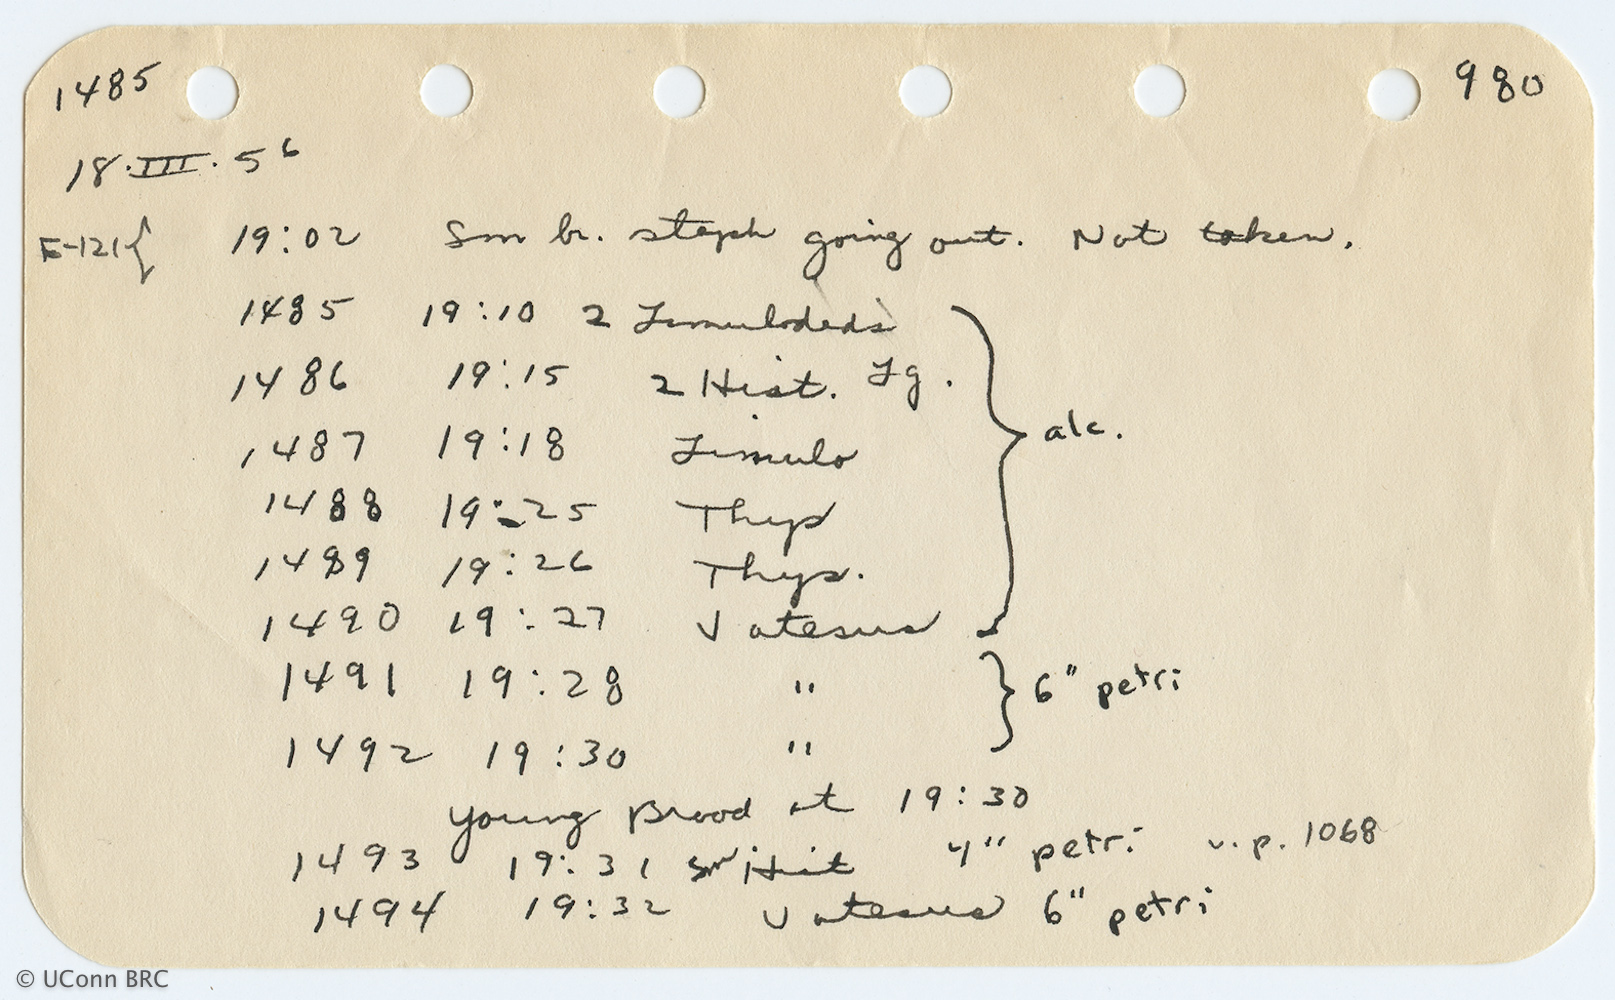 1485 980
18.III.56
E-121{ 19:02 Sm br. staph going out. Not taken.
1485 19:10 2 Limulodids
1486 19:15 2 Hist. Lg.
1487 19:18 Limulo } alc.
1488 19:25 Thys
1489 19:26 Thys.
1490 19:27 Vatesus
1491 19:28 " } 6" petri
1492 19:30 "
Young Brood at 19:30
1493 19:31 sm Hist 4" petri v.p. 1068
1494 19:32 Vatesus 6" petri
© UConn BRC